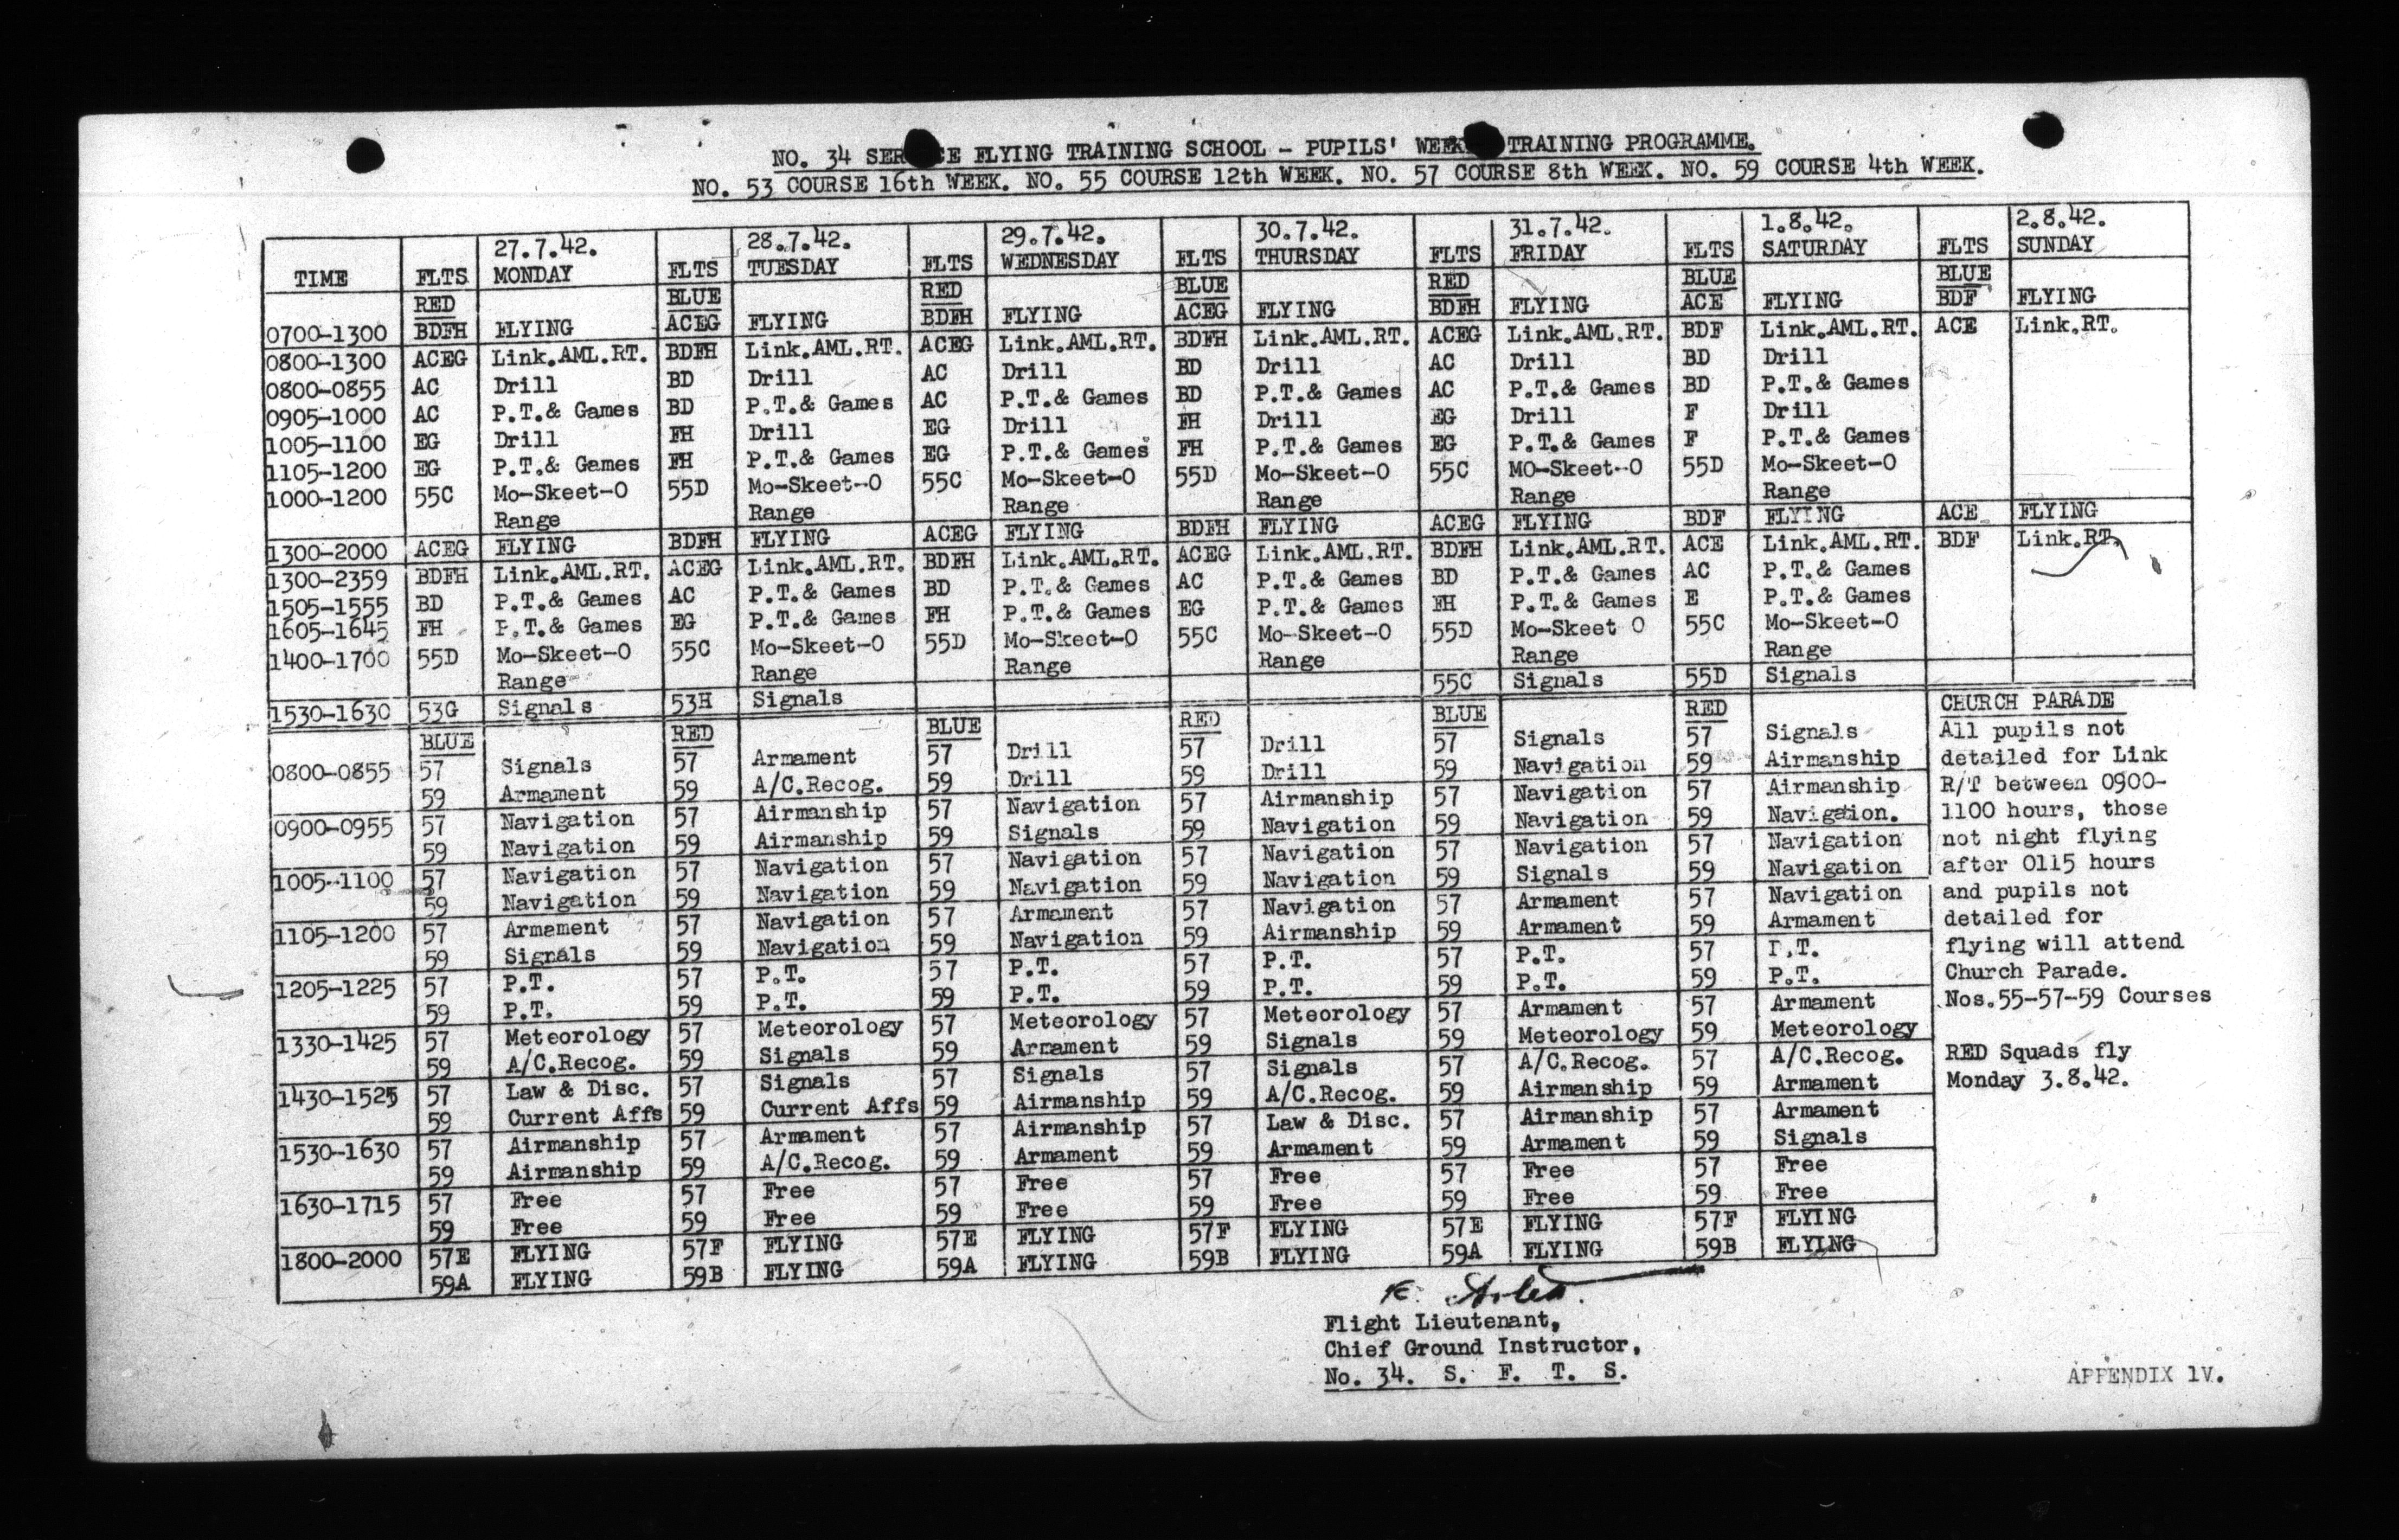 NO. 34 SERVICE FLYING TRAINING SCHOOL - PUPILS' WEEKLY TRAINING PROGRAMME.
NO. 53 COURSE 16th WEEK. NO. 55 COURSE 12th WEEK. NO. 57 COURSE 8th WEEK. NO. 59 COURSE 4th WEEK.
27.7.42. 28.7.42. 29.7.42. 30.7.42. 31.7.42. 1.8.42. 2.8.42.
TIME FLTS MONDAY FLTS TUESDAY FLTS WEDNESDAY FLTS THURSDAY FLTS FRIDAY FLTS SATURDAY FLTS SUNDAY
RED BLUE RED BLUE RED BLUE BLUE
0700-1300 BDFH FLYING ACEG FLYING BDFH FLYING ACEG FLYING BDFH FLYING ACE FLYING BDF FLYING
0800-1300 ACEG Link.AML.RT. BDFH Link.AML.RT. ACEG Link.AML.RT. BDFH Link.AML.RT. ACEG Link.AML.RT. BDF Link.AML.RT. ACE Link.RT.
0800-0855 AC Drill BD Drill AC Drill BD Drill AC Drill BD Drill
0905-1000 AC P.T.& Games BD P.T.& Games AC P.T.& Games BD P.T.& Games AC P.T.& Games BD P.T.& Games
1005-1100 EG Drill FH Drill EG Drill FH Drill EG Drill F Drill
1105-1200 EG P.T.& Games FH P.T.& Games EG P.T.& Games FH P.T.& Games EG P.T.& Games F P.T.& Games
1000-1200 55C Mo-Skeet-O 55D Mo-Skeet-O 55C Mo-Skeet-O 55D Mo-Skeet-O 55C MO-Skeet-O 55D Mo-Skeet-O
Range Range Range Range Range Range
1300-2000 ACEG FLYING BDFH FLYING ACEG FLYING BDFH FLYING ACEG FLYING BDF FLYING ACE FLYING
1300-2359 BDFH Link.AML.RT. ACEG Link.AML.RT. BDFH Link.AML.RT. ACEG Link.AML.RT. BDFH Link.AML.RT. ACE Link.AML.RT. BDF Link.RT.
1505-1555 BD P.T.& Games AC P.T.& Games BD P.T.& Games AC P.T.& Games BD P.T.& Games AC P.T.& Games
1605-1645 FH P.T.& Games EG P.T.& Games FH P.T.& Games EG P.T.& Games FH P.T.& Games E P.T.& Games
1400-1700 55D Mo-Skeet-O 55C Mo-Skeet-O 55D Mo-Skeet-O 55C Mo-Skeet-O 55D Mo-Skeet O 55C Mo-Skeet-O
Range Range Range Range Range Range
1530-1630 53G Signals 53H Signals 55C Signals 55D Signals
BLUE RED BLUE RED BLUE RED
0800-0855 57 Signals 57 Armament 57 Drill 57 Drill 57 Signals 57 Signals
59 Armament 59 A/C.Recog. 59 Drill 59 Drill 59 Navigation 59 Airmanship
0900-0955 57 Navigation 57 Airmanship 57 Navigation 57 Airmanship 57 Navigation 57 Airmanship
59 Navigation 59 Airmanship 59 Signals 59 Navigation 59 Navigation 59 Navigation.
1005-1100 57 Navigation 57 Navigation 57 Navigation 57 Navigation 57 Navigation 57 Navigation
59 Navigation 59 Navigation 59 Navigation 59 Navigation 59 Signals 59 Navigation
1105-1200 57 Armament 57 Navigation 57 Armament 57 Navigation 57 Armament 57 Navigation
59 Signals 59 Navigation 59 Navigation 59 Airmanship 59 Armament 59 Armament
1205-1225 57 P.T. 57 P.T. 57 P.T. 57 P.T. 57 P.T. 57 P.T.
59 P.T. 59 P.T. 59 P.T. 59 P.T. 59 P.T. 59 P.T.
1330-1425 57 Meteorology 57 Meteorology 57 Meteorology 57 Meteorology 57 Armament 57 Armament
59 A/C.Recog. 59 Signals 59 Armament 59 Signals 59 Meteorology 59 Meteorology
1430-1525 57 Law & Disc. 57 Signals 57 Signals 57 Signals 57 A/C.Recog. 57 A/C.Recog.
59 Current Affs 59 Current Affs 59 Airmanship 59 A/C.Recog. 59 Airmanship 59 Armament
1530-1630 57 Airmanship 57 Armament 57 Airmanship 57 Law & Disc. 57 Airmanship 57 Armament
59 Airmanship 59 A/C.Recog. 59 Armament 59 Armament 59 Armament 59 Signals
1630-1715 57 Free 57 Free 57 Free 57 Free 57 Free 57 Free
59 Free 59 Free 59 Free 59 Free 59 Free 59 Free
1800-2000 57E FLYING 57F FLYING 57E FLYING 57F FLYING 57E FLYING 57F FLYING
59A FLYING 59B FLYING 59A FLYING 59B FLYING 59A FLYING 59B FLYING
CHURCH PARADE
All pupils not
detailed for Link
R/T between 0900-
1100 hours, those
not night flying
after 0115 hours
and pupils not
detailed for
flying will attend
Church Parade.
Nos.55-57-59 Courses
RED Squads fly
Monday 3.8.42.
Flight Lieutenant,
Chief Ground Instructor,
No. 34. S. F. T. S.
APPENDIX 1V.